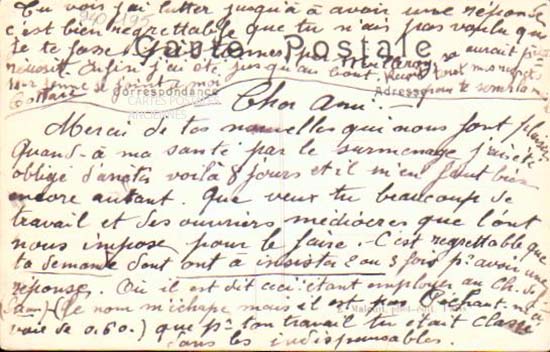 Tu vois j'ai lutter jusqu'à à avoir une réponse
c'est bien regrettable que tu n'ais pas voulu que
je te fasse par aurait pu
réussir. Enfin j'ai été jusqu'au bout.
ma femme se joint à moi
940 195
Carte Postale
Correspondance
Adresse
CARTES POSTALES
ANCIENNES
Cher Ami. —
Merci de tes nouvelles qui nous font plaisir
Quand-à ma santé par le surmenage j'ai été
obligé d'arrêter voilà 8 jours et il m'en faut bien
encore autant. Que veux tu beaucoup de
travail et des ouvriers médiocres que l'ont
nous impose pour le faire. C'est regrettable que
ta demande dont ont à insister 2 ou 3 fois pr avoir une
réponse. Où il est dit ceci étant employer au Ch. de
(Le nom m'échape mais il est pas
voie de 0.60.) que pr ton travail tu était classé
dans les indispensables.